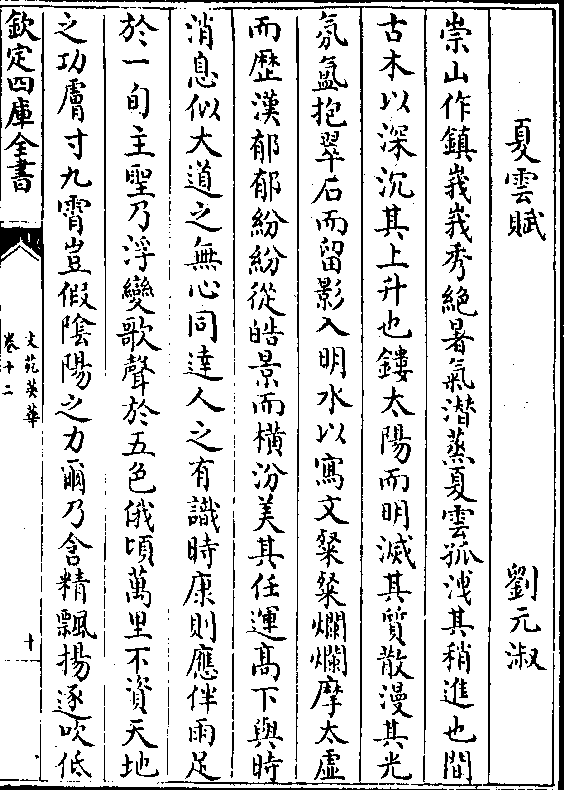 夏雲賦　劉元淑
崇山作鎮峩峩秀絕暑氣潜蒸夏雲孤洩其稍進也間
古木以深沉其上升也鏤太陽而明滅其質散漫其光
氛氲抱翠石而留影入明水以寫文粲粲爛爛摩太虛
而歷漢郁郁紛紛從皓景而橫汾美其任運髙下與時
消息似大道之無心同達人之有識時康則應伴雨足
於一旬主聖乃浮變歌聲於五色俄頃萬里不資天地
之功膚寸九霄豈假隂陽之力爾乃含精飄揚逐吹低
欽定四庫全書
文苑英華
卷十二
十